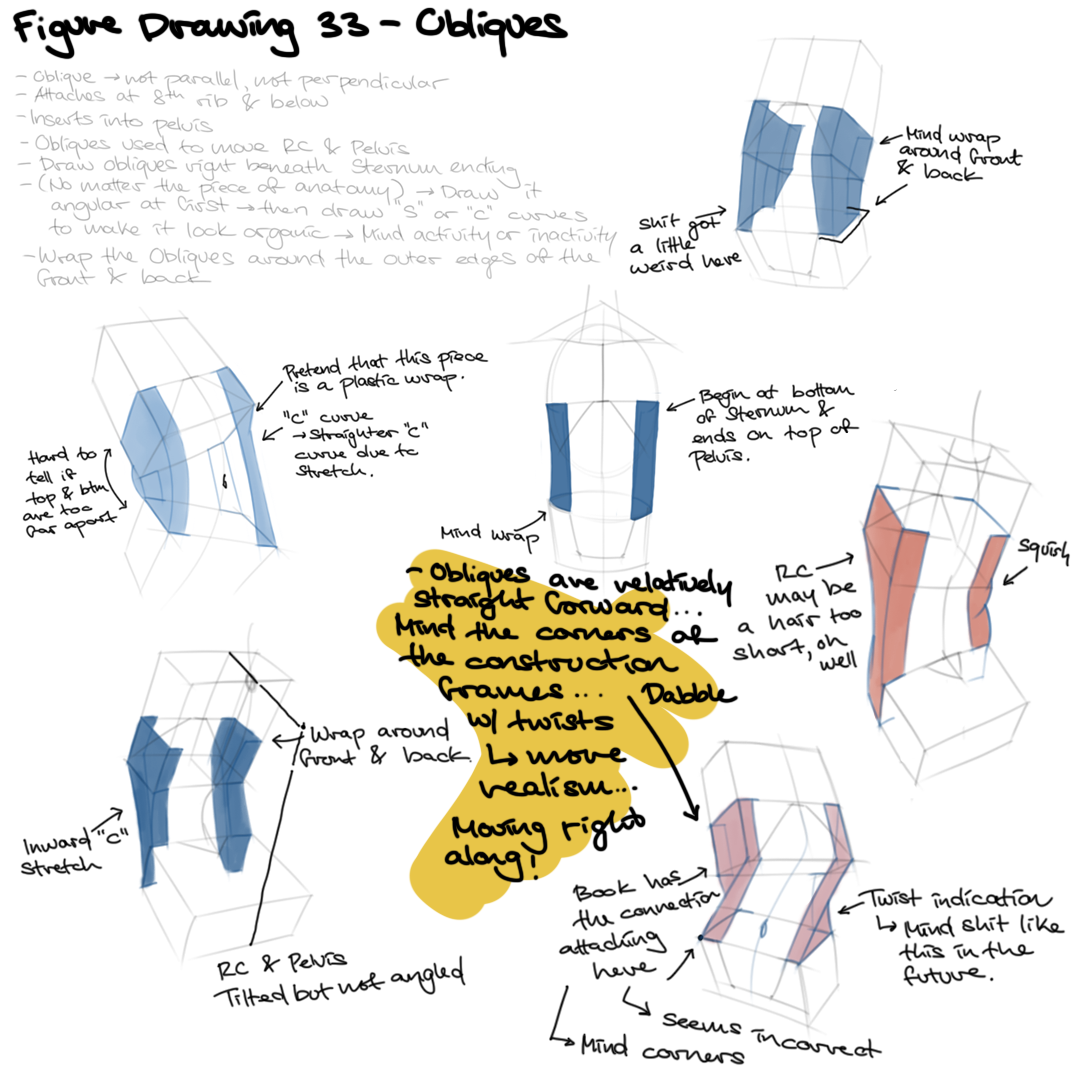 Figure Drawing 33 - Obliques
- Oblique → not parallel, not perpendicular
- Attaches at 8th rib & below
- Inserts into pelvis
- Obliques used to move RC & Pelvis
- Draw obliques right beneath Sternum ending
- (No matter the piece of anatomy) → Draw it
angular at first → then draw "S" or "C" curves
to make it look organic → Mind activity or inactivity
- Wrap the Obliques around the outer edges of the
front & back
Mind wrap
around front
& back
shit got
a little
weird here
Pretend that this piece
is a plastic wrap.
"C" curve
→ Straighter "C"
curve due to
stretch.
Hard to
tell if
top & btm
are too
far apart
Begin at bottom
of Sternum &
ends on top of
Pelvis.
Mind wrap
RC
may be
a hair too
short, oh
well
Squish
- Obliques are relatively
straight forward...
Mind the corners of
the construction
frames...
w/ twists
↳ more
realism...
Moving right
along!
Dabble
Wrap around
front & back
Inward "C"
stretch
RC & Pelvis
Tilted but not angled
Book has
the connection
attaching
here
↳ Seems incorrect
↳ Mind corners
Twist indication
↳ Mind shit like
this in the
future.